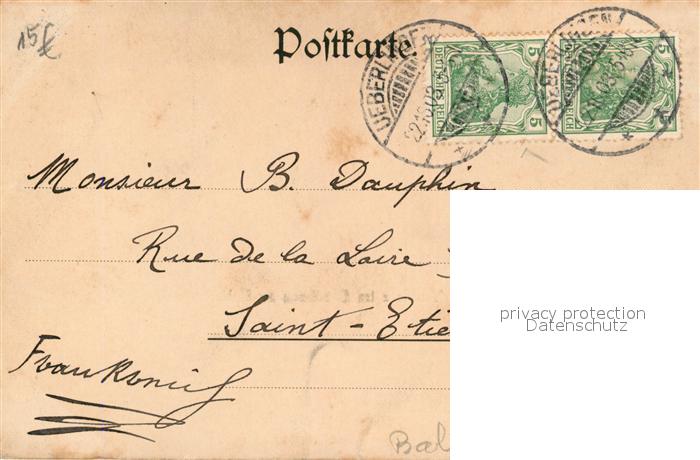 15€
Postkarte.
UEBERLINGEN
5 5
DEUTSCHES REICH
5 5
UEBERLINGEN
5 5
DEUTSCHES REICH
Monsieur B. Dauphin
Rue de la Loire
Saint-Etie
Frankreich
privacy protection
Datenschutz